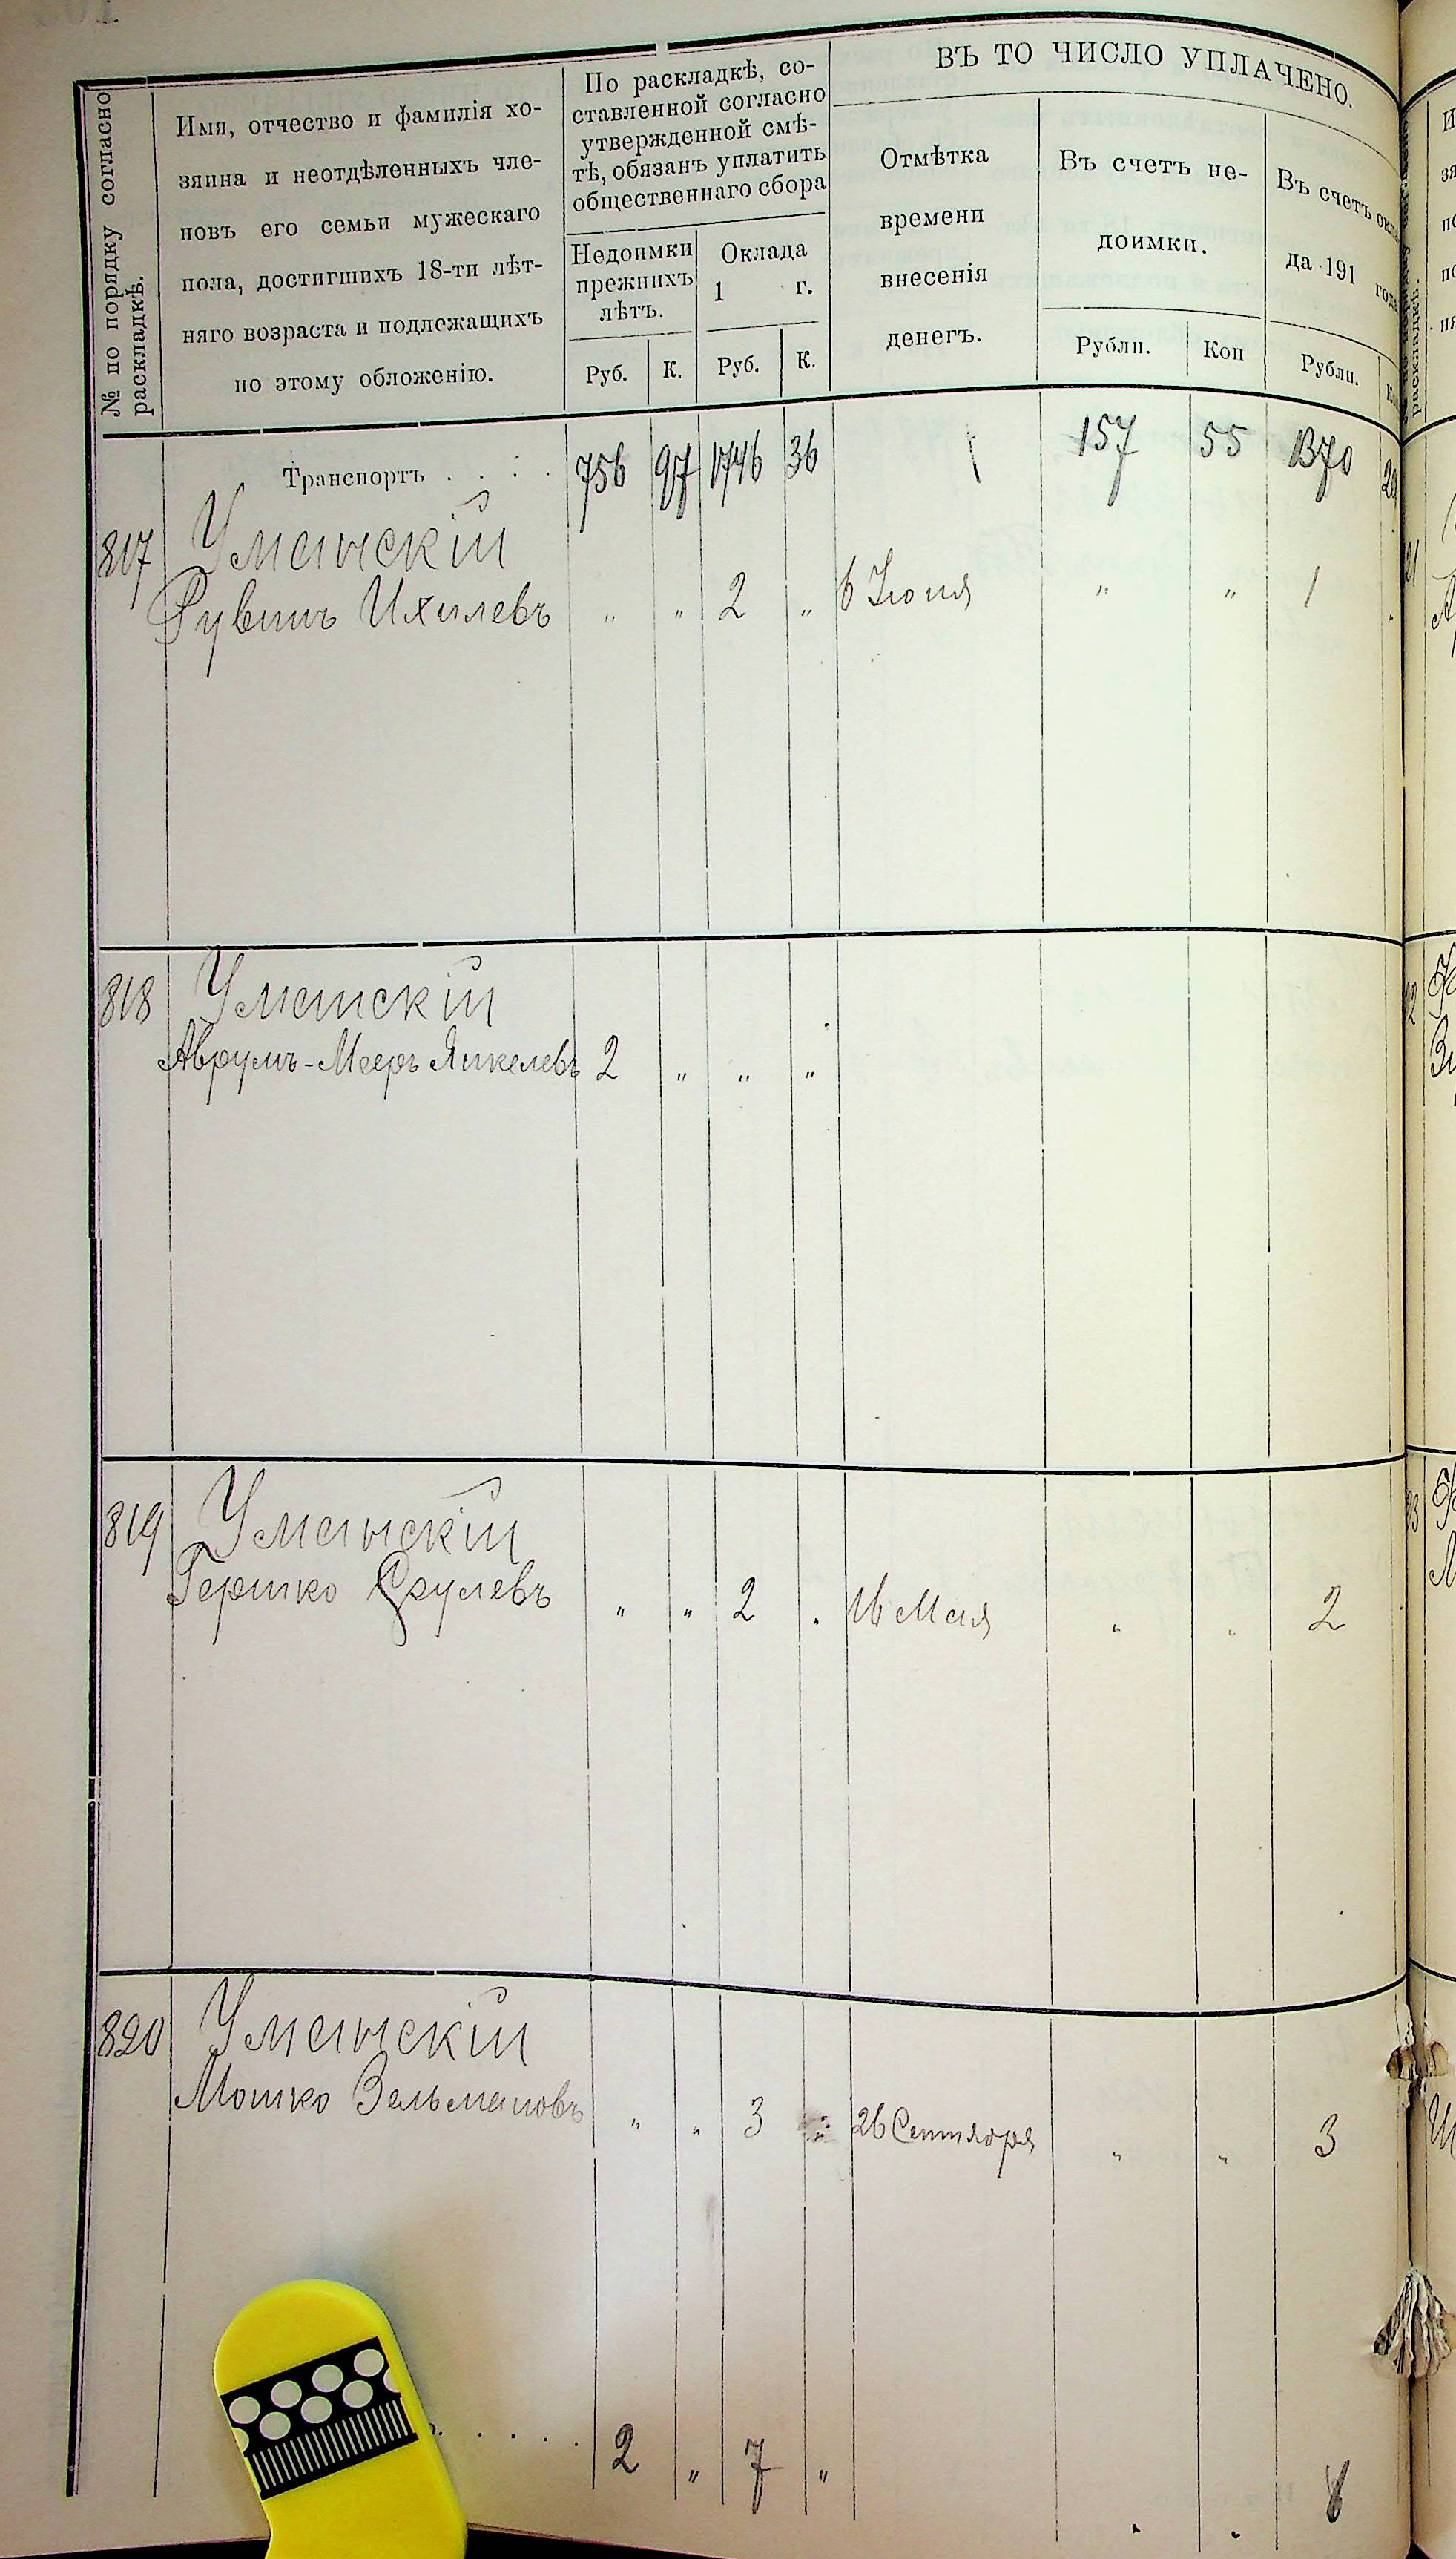 № по порядку согласно
раскладкѣ.
Имя, отчество и фамилія хо-
зяина и неотдѣленныхъ чле-
новъ его семьи мужескаго
пола, достигшихъ 18-ти лѣт-
няго возраста и подлежащихъ
по этому обложенію.
По раскладкѣ, со-
ставленной согласно
утвержденной смѣ-
тѣ, обязанъ уплатить
общественнаго сбора
Недоимки
прежнихъ
лѣтъ.
Оклада
1 г.
Руб. К. Руб. К.
ВЪ ТО ЧИСЛО УПЛАЧЕНО.
Отмѣтка
времени
внесенія
денегъ.
Въ счетъ не-
доимки.
Рубли. Коп
Въ счетъ окла
да 191 года
Рубли.
Транспортъ . . . . 756 97 1746 36 157 55 1370
817 Уманскій
Рувинъ Ихилевъ „ „ 2 „ 6 Іюня „ „ 1
818 Уманскій
Аврумъ-Мееръ Янкелевъ 2 „ „ „
819 Уманскій
Гершко Срулевъ „ „ 2 „ 16 Мая „ „ 2
820 Уманскій
Мошко Зельмановъ „ „ 3 „ 26 Сентября „ „ 3
2 „ 7 „ „ „